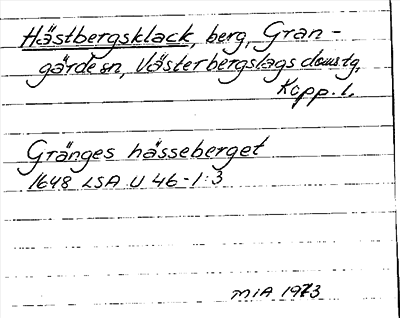 Hästbergsklack, berg, Gran-
gärde sn, Västerbergslags domstg,
Kopp. l.
Gränges hässeberget
1648 LSA U 46-1:3
MiA 1973